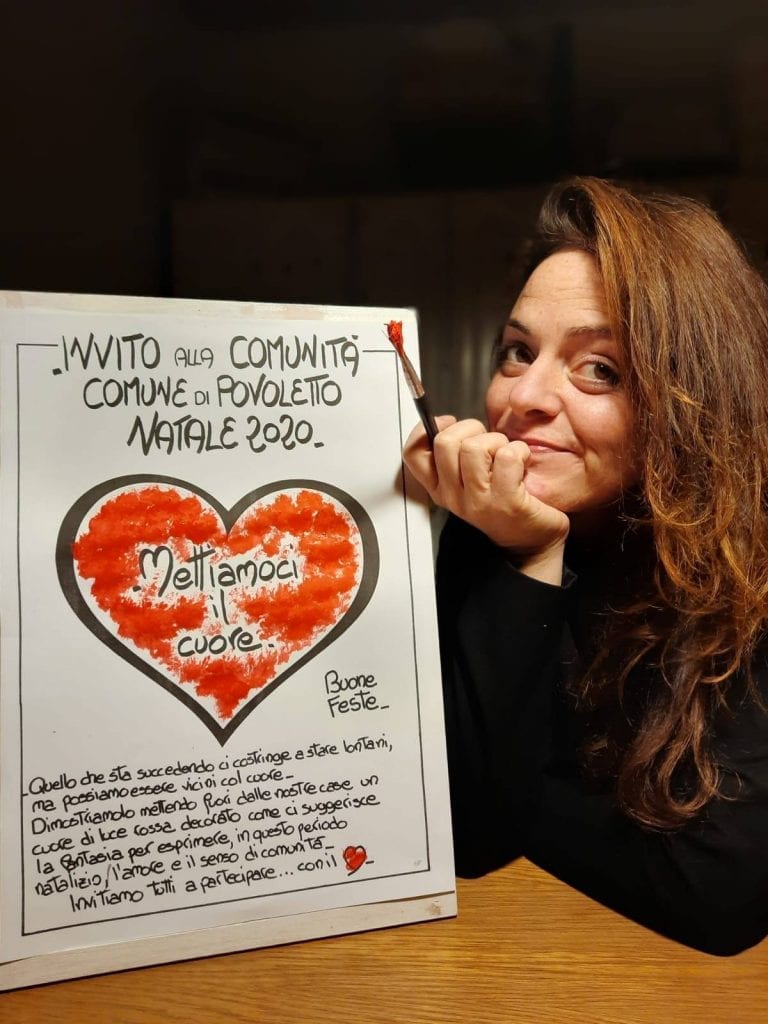 INVITO ALLA COMUNITÀ
COMUNE DI POVOLETTO
NATALE 2020_
.Mettiamoci
il
cuore.
BUONE
FESTE_
Quello che sta succedendo ci costringe a stare lontani,
ma possiamo essere vicini col cuore_
Dimostriamolo mettendo fuori dalle nostre case un
cuore di luce rossa decorato come ci suggerisce
la fantasia per esprimere, in questo periodo
natalizio, l'amore e il senso di comunità_
Invitiamo tutti a partecipare... con il